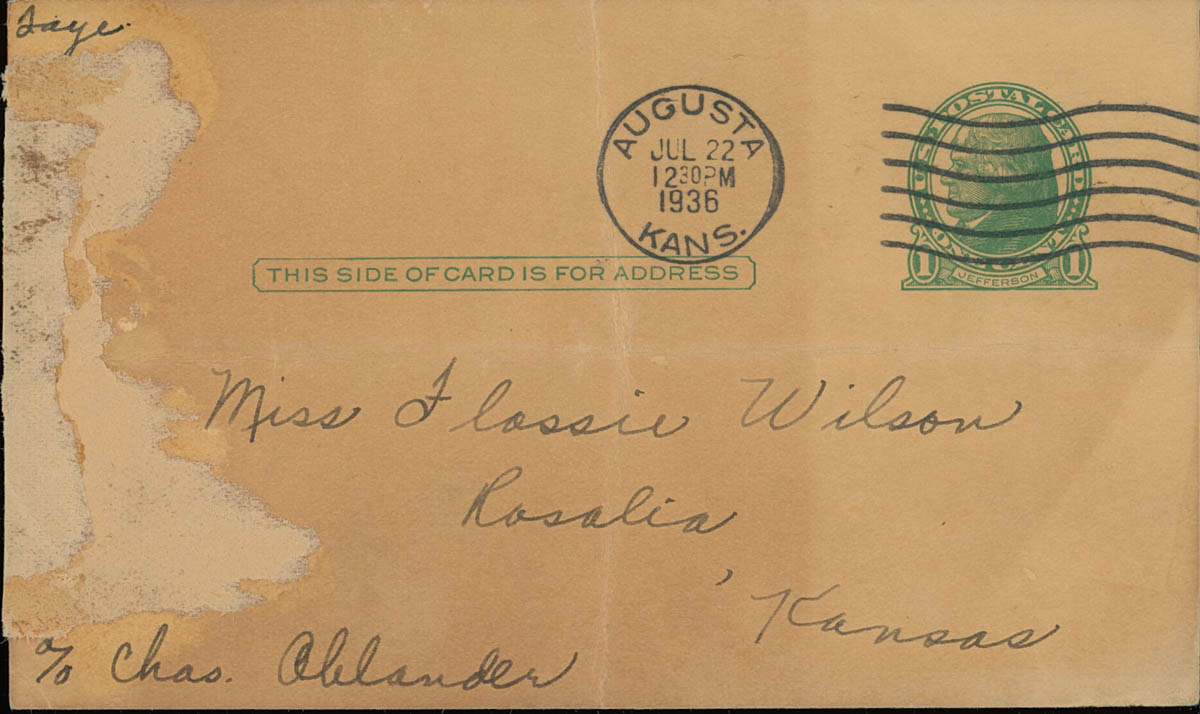 Faye
AUGUSTA
JUL 22
12 30 PM
1936
KANS.
U.S. POSTAL CARD
1 JEFFERSON 1
THIS SIDE OF CARD IS FOR ADDRESS
Miss Flossie Wilson
Rosalia,
Kansas
c/o Chas. Ohlander